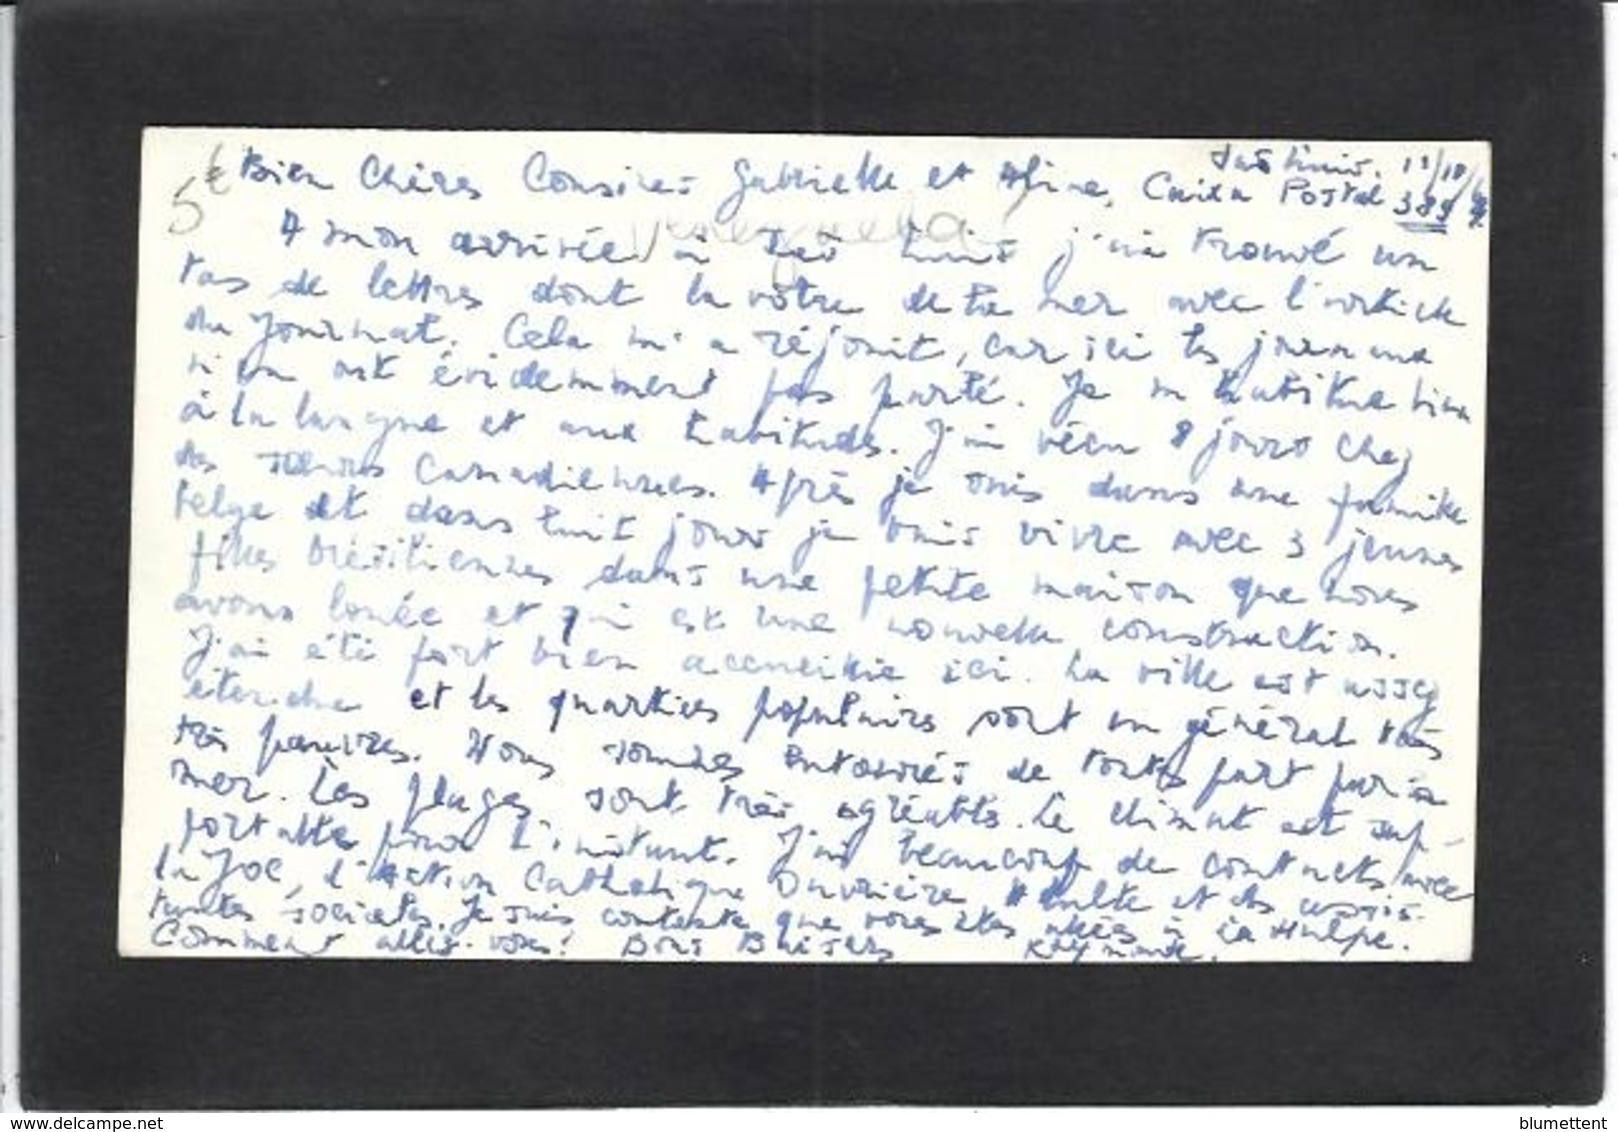 São Luis. 11/10/
Bien Chères Cousines Gabrielle et Aline, Caixa Postal 389
5 €
Venezuela
A mon arrivée à São Luis j'ai trouvé un
tas de lettres dont la vôtre de la mer avec l'article
du journal. Cela m'a réjouit, car ici les journaux
n'en ont évidemment pas parlé. Je m'habitue bien
à la langue et aux habitudes. J'ai vécu 8 jours chez
des soeurs Canadiennes. Après je suis dans une famille
belge et dans huit jours je vais vivre avec 3 jeunes
filles brésiliennes dans une petite maison que nous
avons louée et qui est une nouvelle construction.
J'ai été fort bien accueillie ici. La ville est assez
étendue et les quartiers populaires sont en général très
très pauvres. Nous sommes entourés de toutes part par la
mer. Les plages sont très agréables. Le climat est sup-
portable pour l'instant. J'ai beaucoup de contacts avec
la JOC, l'Action Catholique Ouvrière Adulte et des assis-
tantes sociales. Je suis contente que vous êtes allées à La Hulpe.
Comment allez-vous? Bons Baisers Raymonde.
delcampe.net
blumettent